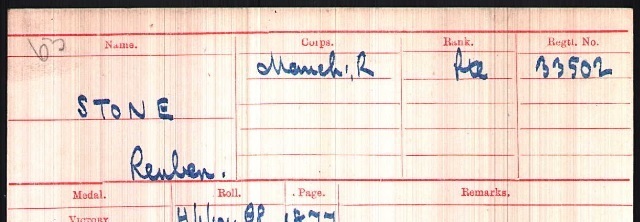 Name. Corps. Rank. Regtl. No.
Manch. R Pte 33502
STONE
Reuben.
Medal. Roll. Page. Remarks.
Victory 1877